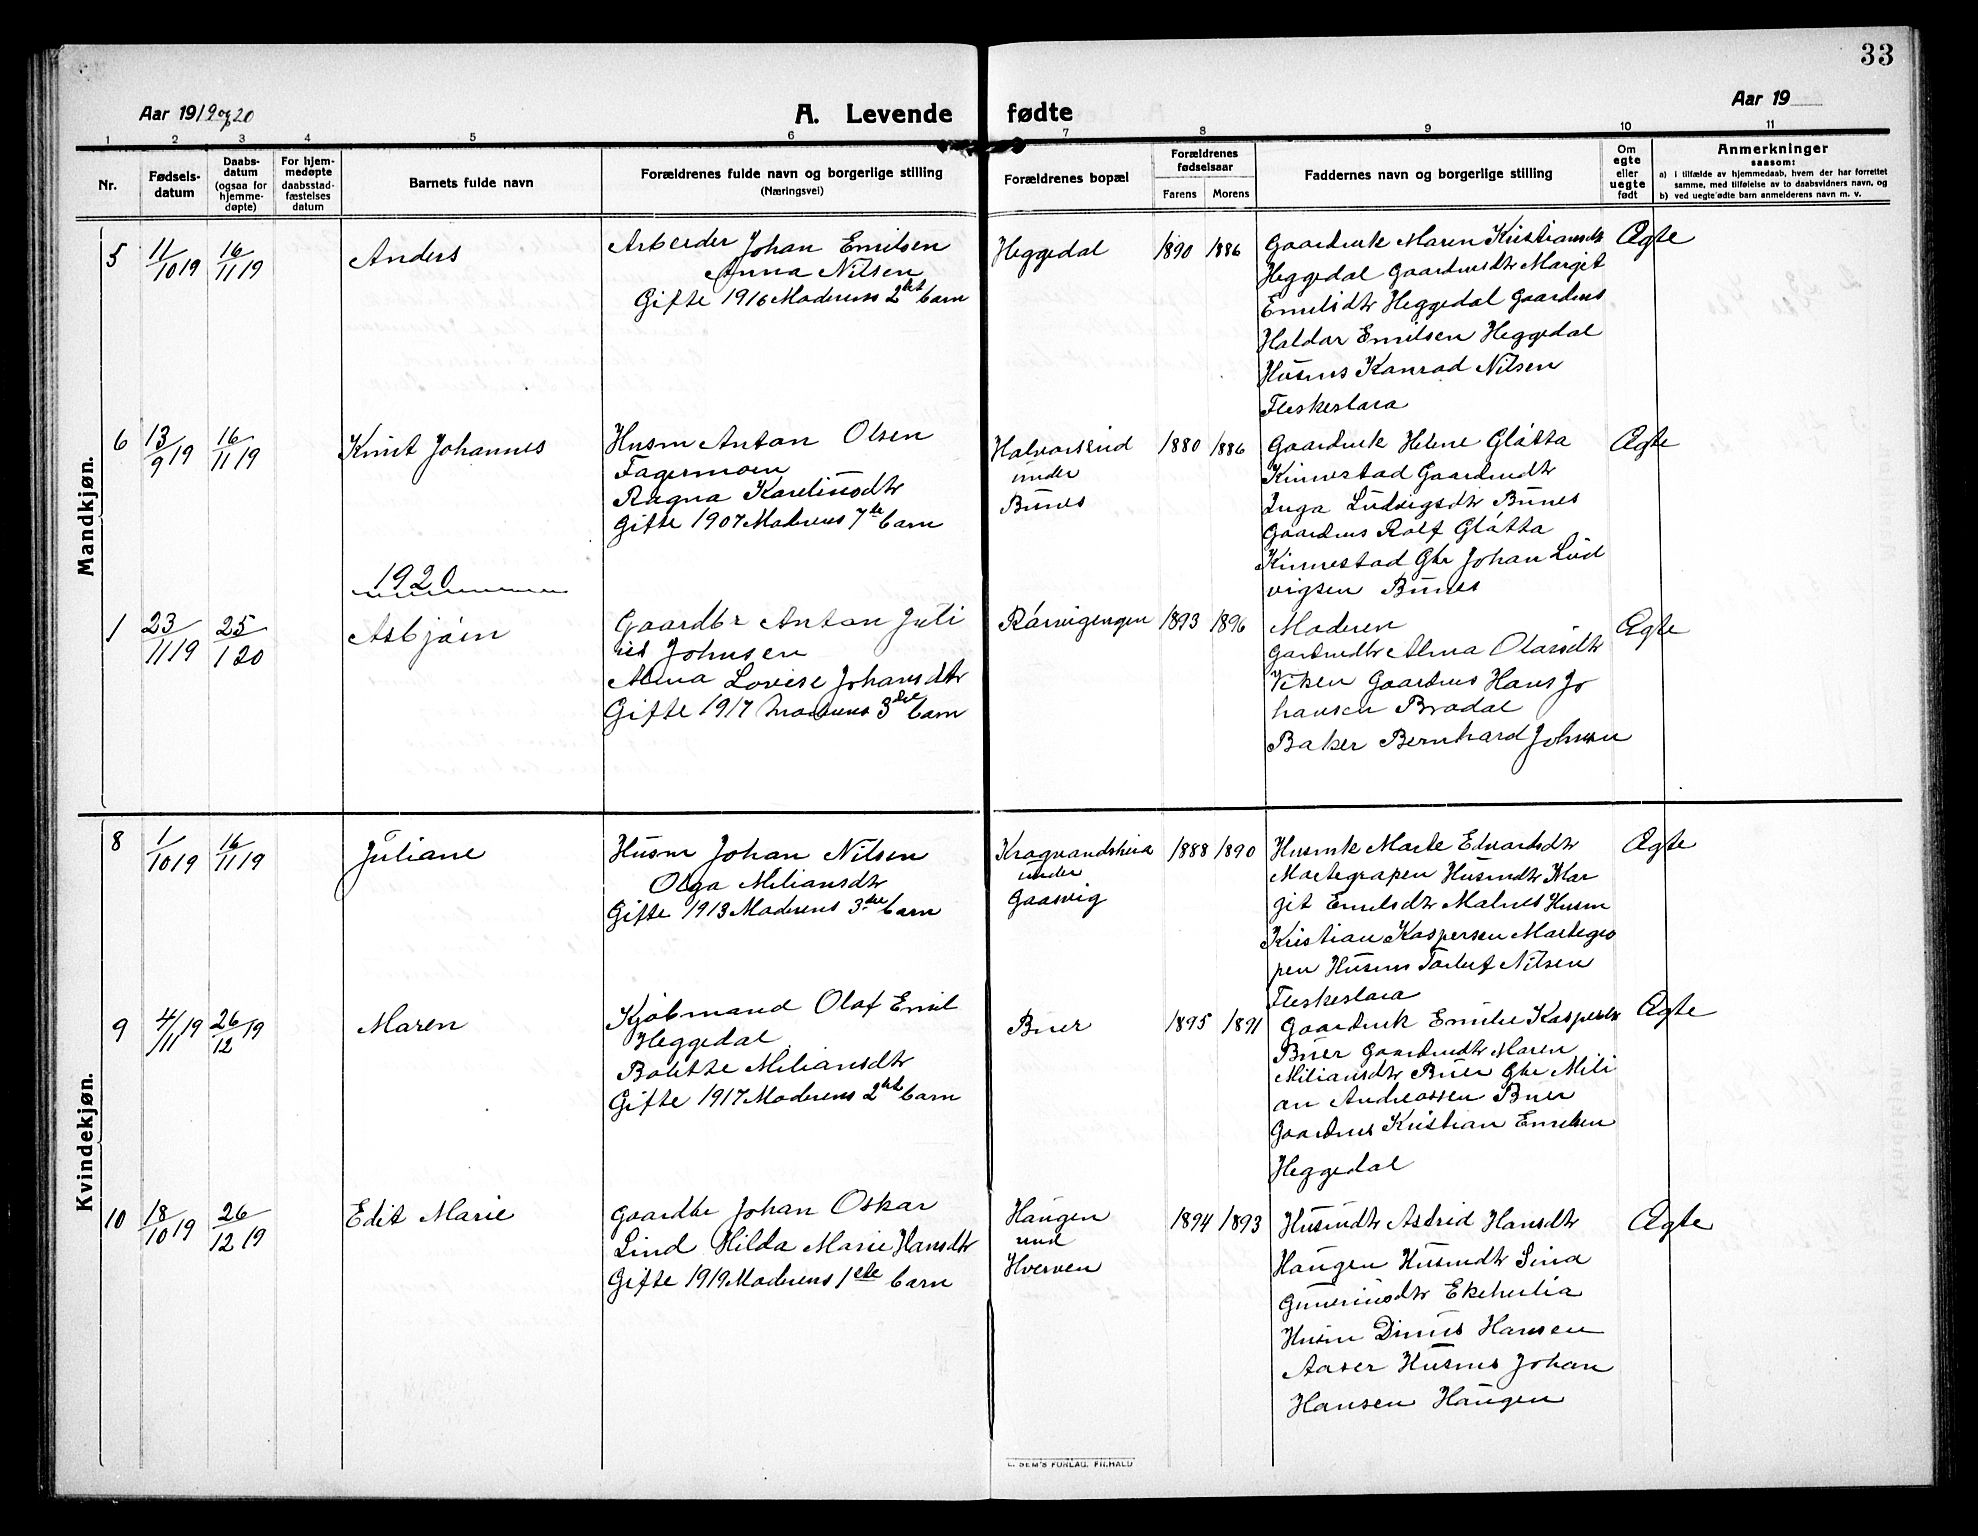 33
Aar 1919 og 20
A. Levende fødte
Aar 19
1 2 3 4 5 6 7 8 9 10 11
Nr.
Fødsels-
datum
Daabs-
datum
(ogsaa for
hjemme-
døpte)
For hjem-
medøpte
daabsstad-
fæstelses
datum
Barnets fulde navn
Forældrenes fulde navn og borgerlige stilling
(Næringsvei)
Forældrenes bopæl
Forældrenes
fødselsaar
Farens Morens
Faddernes navn og borgerlige stilling
Om
egte
eller
uegte
født
Anmerkninger
saasom:
a) i tilfælde av hjemmedaab, hvem der har forrettet
samme, med tilføielse av to daabsvidners navn, og
b) ved uegte fødte barn anmelderens navn m. v.
Mandkjøn.
5 11/10 19 16/11 19 Anders
Arbeider Johan Emilsen
Anna Nilsen
Gifte 1916 Moderens 2det barn
Heggedal 1890 1886
Gaardmk Maren Kristiansdtr
Heggedal Gaardmdtr Margit
Emilsdtr Heggedal Gaardms
Haldor Emilsen Heggedal
Husms Konrad Nilsen
Fleskeslara
Ægte
6 13/9 19 16/11 19 Knut Johannes
Husm Anton Olsen
Fagermoen
Ragna Karelinsdtr
Gifte 1907 Moderens 7de barn
Halvorslund
under
Bunes
1880 1886
Gaardmk Helene Gløtta
Kinnestad Gaardmdtr
Inga Ludvigsdtr Bunes
Gaardms Rolf Gløtta
Kinnestad Gbr Johan Lud
vigsen Bunes
Ægte
1920
1 23/11 19 25/1 20 Asbjørn
Gaardbr Anton Juli
us Johnsen
Alma Lovise Johansdtr
Gifte 1917 Moderens 3die barn
Rørvigengen 1893 1896
Moderen
Gardmdtr Alma Olavsdtr
Viken Gaardms Hans Jo
hansen Brodal
Baker Bernhard Johnsen
Ægte
Kvindekjøn.
8 1/10 19 16/11 19 Juliane
Husm Johan Nilsen
Olga Miliansdtr
Gifte 1913 Moderens 3die barn
Kragvandsheia
under
Gaasvig
1888 1890
Husmk Marte Edvardsdtr
Martegrapen Husmdtr Mar
git Emilsdtr Malnes Husm
Kristian Kaspersen Martegra
pen Husms Torleif Nilsen
Fleskeslara
Ægte
9 4/11 19 26/12 19 Maren
Kjøbmand Olaf Emil
Heggedal
Bolette Miliansdtr
Gifte 1917 Moderens 2det barn
Buer 1895 1891
Gaardmk Emilie Kaspersdtr
Buer Gaardmdtr Maren
Miliansdtr Buer Gbr Mili
an Andreassen Buer
Gaardms Kristian Emilsen
Heggedal
Ægte
10 18/10 19 26/12 19 Edit Marie
Gaardbr Johan Oskar
Lind Hilda Marie Hansdtr
Gifte 1919 Moderens 1ste barn
Haugen
und
Hverven
1894 1893
Husmdtr Astrid Hansdtr
Haugen Husmdtr Sina
Guneriusdtr Ekeheilia
Husm Dinus Hansen
Aaser Husms Johan
Hansen Haugen
Ægte
E. SEM'S FORLAG, FR.HALD